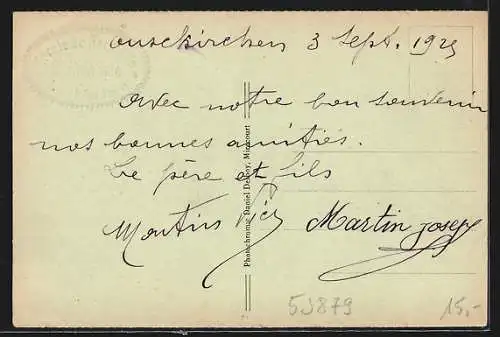 3 Sept. 1925
Avec notre bon souvenir
nos bonnes amitiés.
Le père et fils
Martin
Martin Joseph
Photochromie Daniel Delboy, Mirecourt
53879
15,-